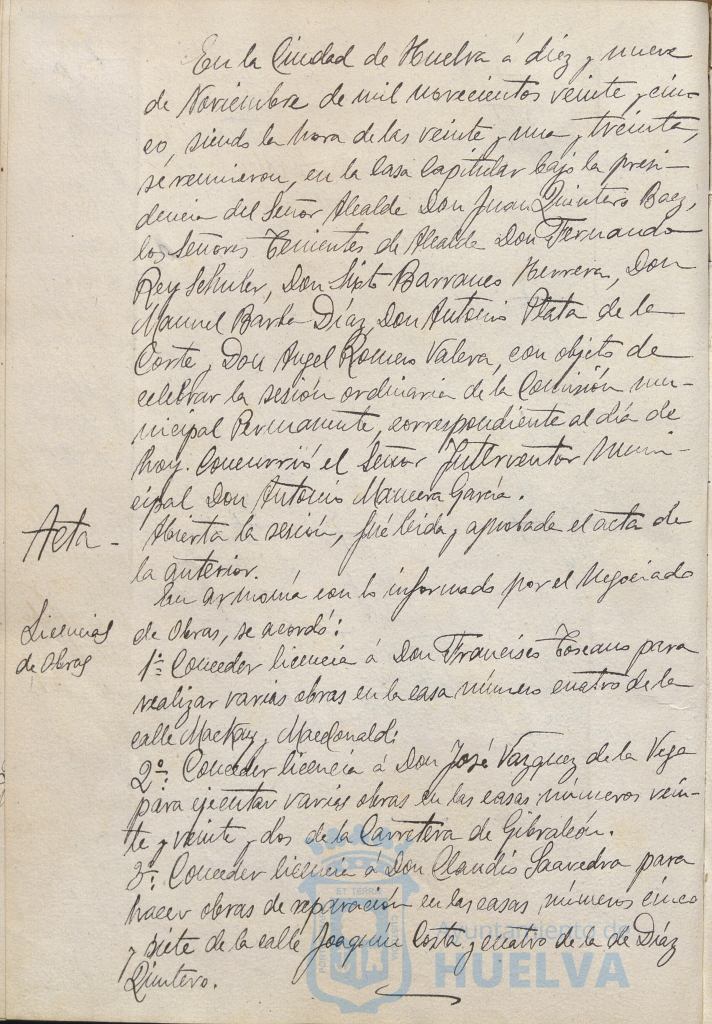 En la Ciudad de Huelva á diez y nueve
de Noviembre de mil novecientos veinte y cin-
co, siendo la hora de las veinte y una y treinta,
se reunieron, en la Casa Capitular bajo la presi-
dencia del Señor Alcalde Don Juan Quintero Baez,
los Señores Tenientes de Alcalde Don Fernando
Rey Schuler, Don Sixto Barranco Herrera, Don
Manuel Barba Díaz, Don Antonio Plata de la
Corte y Don Angel Romero Valera, con objeto de
celebrar la sesión ordinaria de la Comisión mu-
nicipal Permanente, correspondiente al día de
hoy. Concurrió el Señor Interventor Muni-
cipal Don Antonio Mancera García.
Acta - Abierta la sesión, fué leida y aprobada el acta de
la anterior.
En armonía con lo informado por el Negociado
Licencias de Obras, se acordó:
de Obras 1º: Conceder licencia á Don Francisco Toscano para
realizar varias obras en la casa número cuatro de la
calle Mackay y MacDonald:
2º: Conceder licencia á Don José Vazquez de la Vega
para ejecutar varias obras en las casas números vein-
te y veinte y dos de la Carretera de Gibraleón.
3º: Conceder licencia á Don Claudio Saavedra para
hacer obras de reparación en las casas números cinco
y siete de la calle Joaquín Costa y cuatro de la de Díaz
Quintero.
Ayuntamiento de
HUELVA